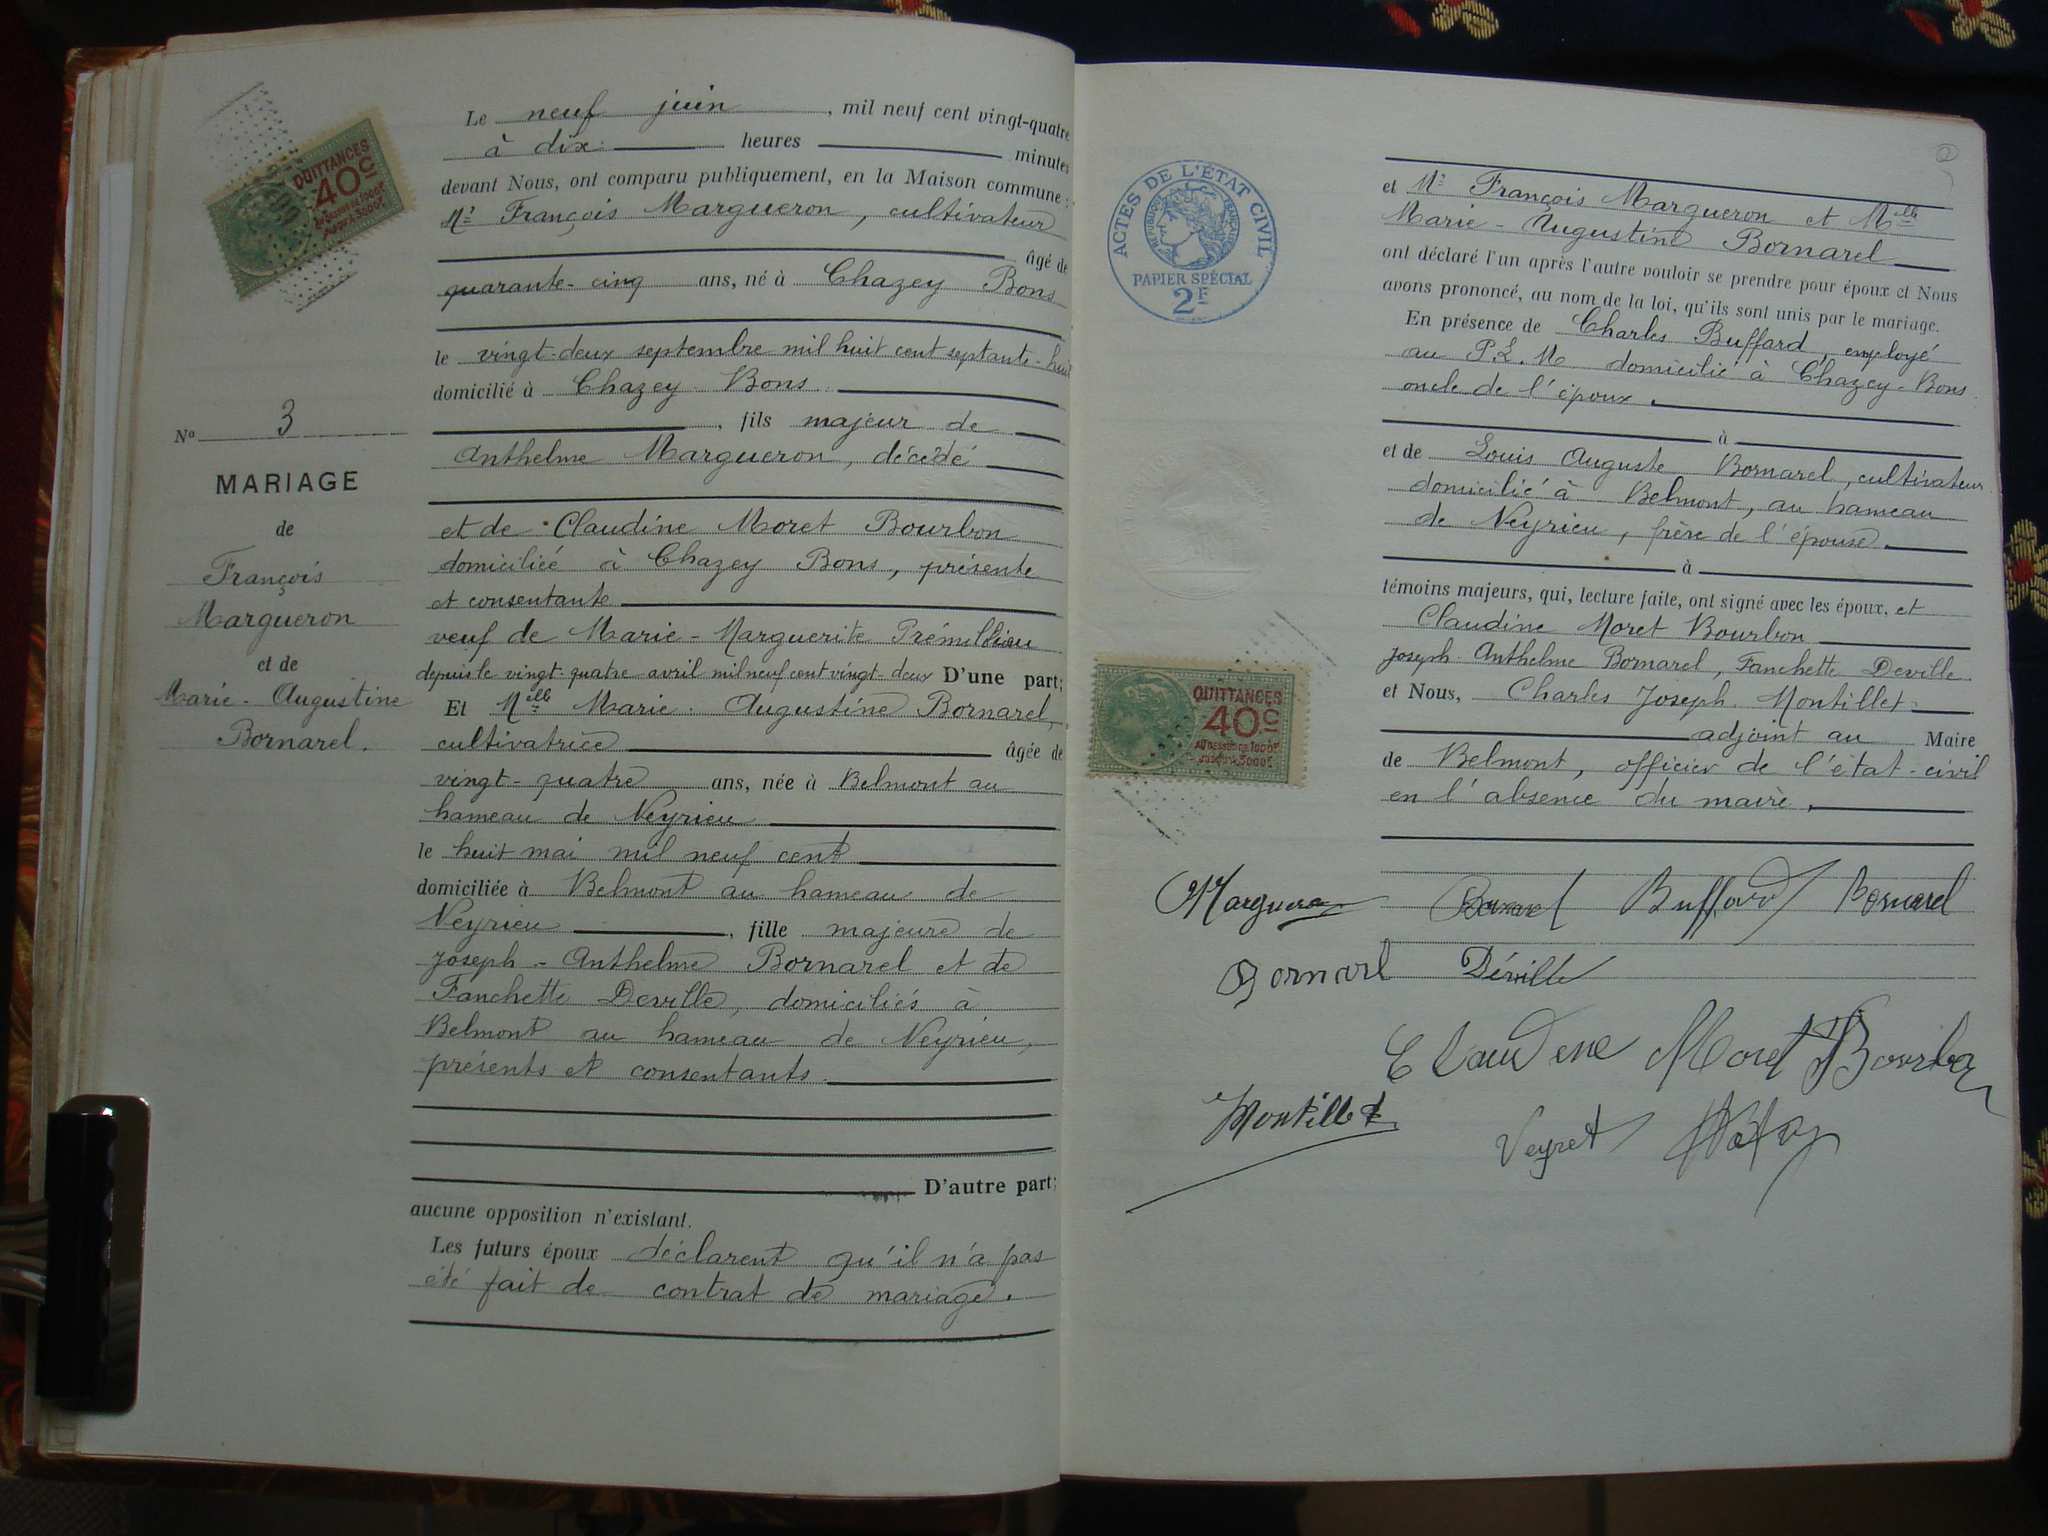 QUITTANCES
40c
Le neuf juin, mil neuf cent vingt-quatre
à dix heures minutes
devant Nous, ont comparu publiquement, en la Maison commune :
Mr François Margueron, cultivateur
âgé de
quarante-cinq ans, né à Chazey Bons
le vingt-deux septembre mil huit cent septante-huit
domicilié à Chazey Bons
, fils majeur de
Anthelme Margueron, décédé
et de Claudine Moret Bourbon
domiciliée à Chazey Bons, présente
et consentante
veuf de Marie-Marguerite Prémillieu
depuis le vingt-quatre avril mil neuf cent vingt-deux D'une part;
Et Melle Marie-Augustine Bornarel,
cultivatrice âgée de
vingt-quatre ans, née à Belmont au
hameau de Neyrieu
le huit mai mil neuf cent
domiciliée à Belmont au hameau de
Neyrieu, fille majeure de
Joseph-Anthelme Bornarel et de
Fanchette Deville, domiciliés à
Belmont au hameau de Neyrieu,
présents et consentants.
D'autre part;
aucune opposition n'existant.
Les futurs époux déclarent qu'il n'a pas
été fait de contrat de mariage.
No 3
MARIAGE
de
François
Margueron
et de
Marie-Augustine
Bornarel.
2
ACTES DE L'ÉTAT CIVIL
RÉPUBLIQUE FRANÇAISE
PAPIER SPÉCIAL
2F
et Mr François Margueron et Melle
Marie-Augustine Bornarel
ont déclaré l'un après l'autre vouloir se prendre pour époux et Nous
avons prononcé, au nom de la loi, qu'ils sont unis par le mariage.
En présence de Charles Buffard, employé
au P.L.M. domicilié à Chazey-Bons
oncle de l'époux.
à
et de Louis Auguste Bornarel, cultivateur
domicilié à Belmont, au hameau
de Neyrieu, frère de l'épouse.
à
témoins majeurs, qui, lecture faite, ont signé avec les époux, et
Claudine Moret Bourbon
Joseph-Anthelme Bornarel, Fanchette Deville
et Nous, Charles Joseph Montillet
adjoint au Maire
de Belmont, officier de l'état-civil
en l'absence du maire.
QUITTANCES
40c
AU DESSUS DE 1000F
JUSQU'À 3000F
Marguero Bornarel Buffard Bornarel
Bornarel Déville
Claudene Moret Bourbon
Montillet Veyret